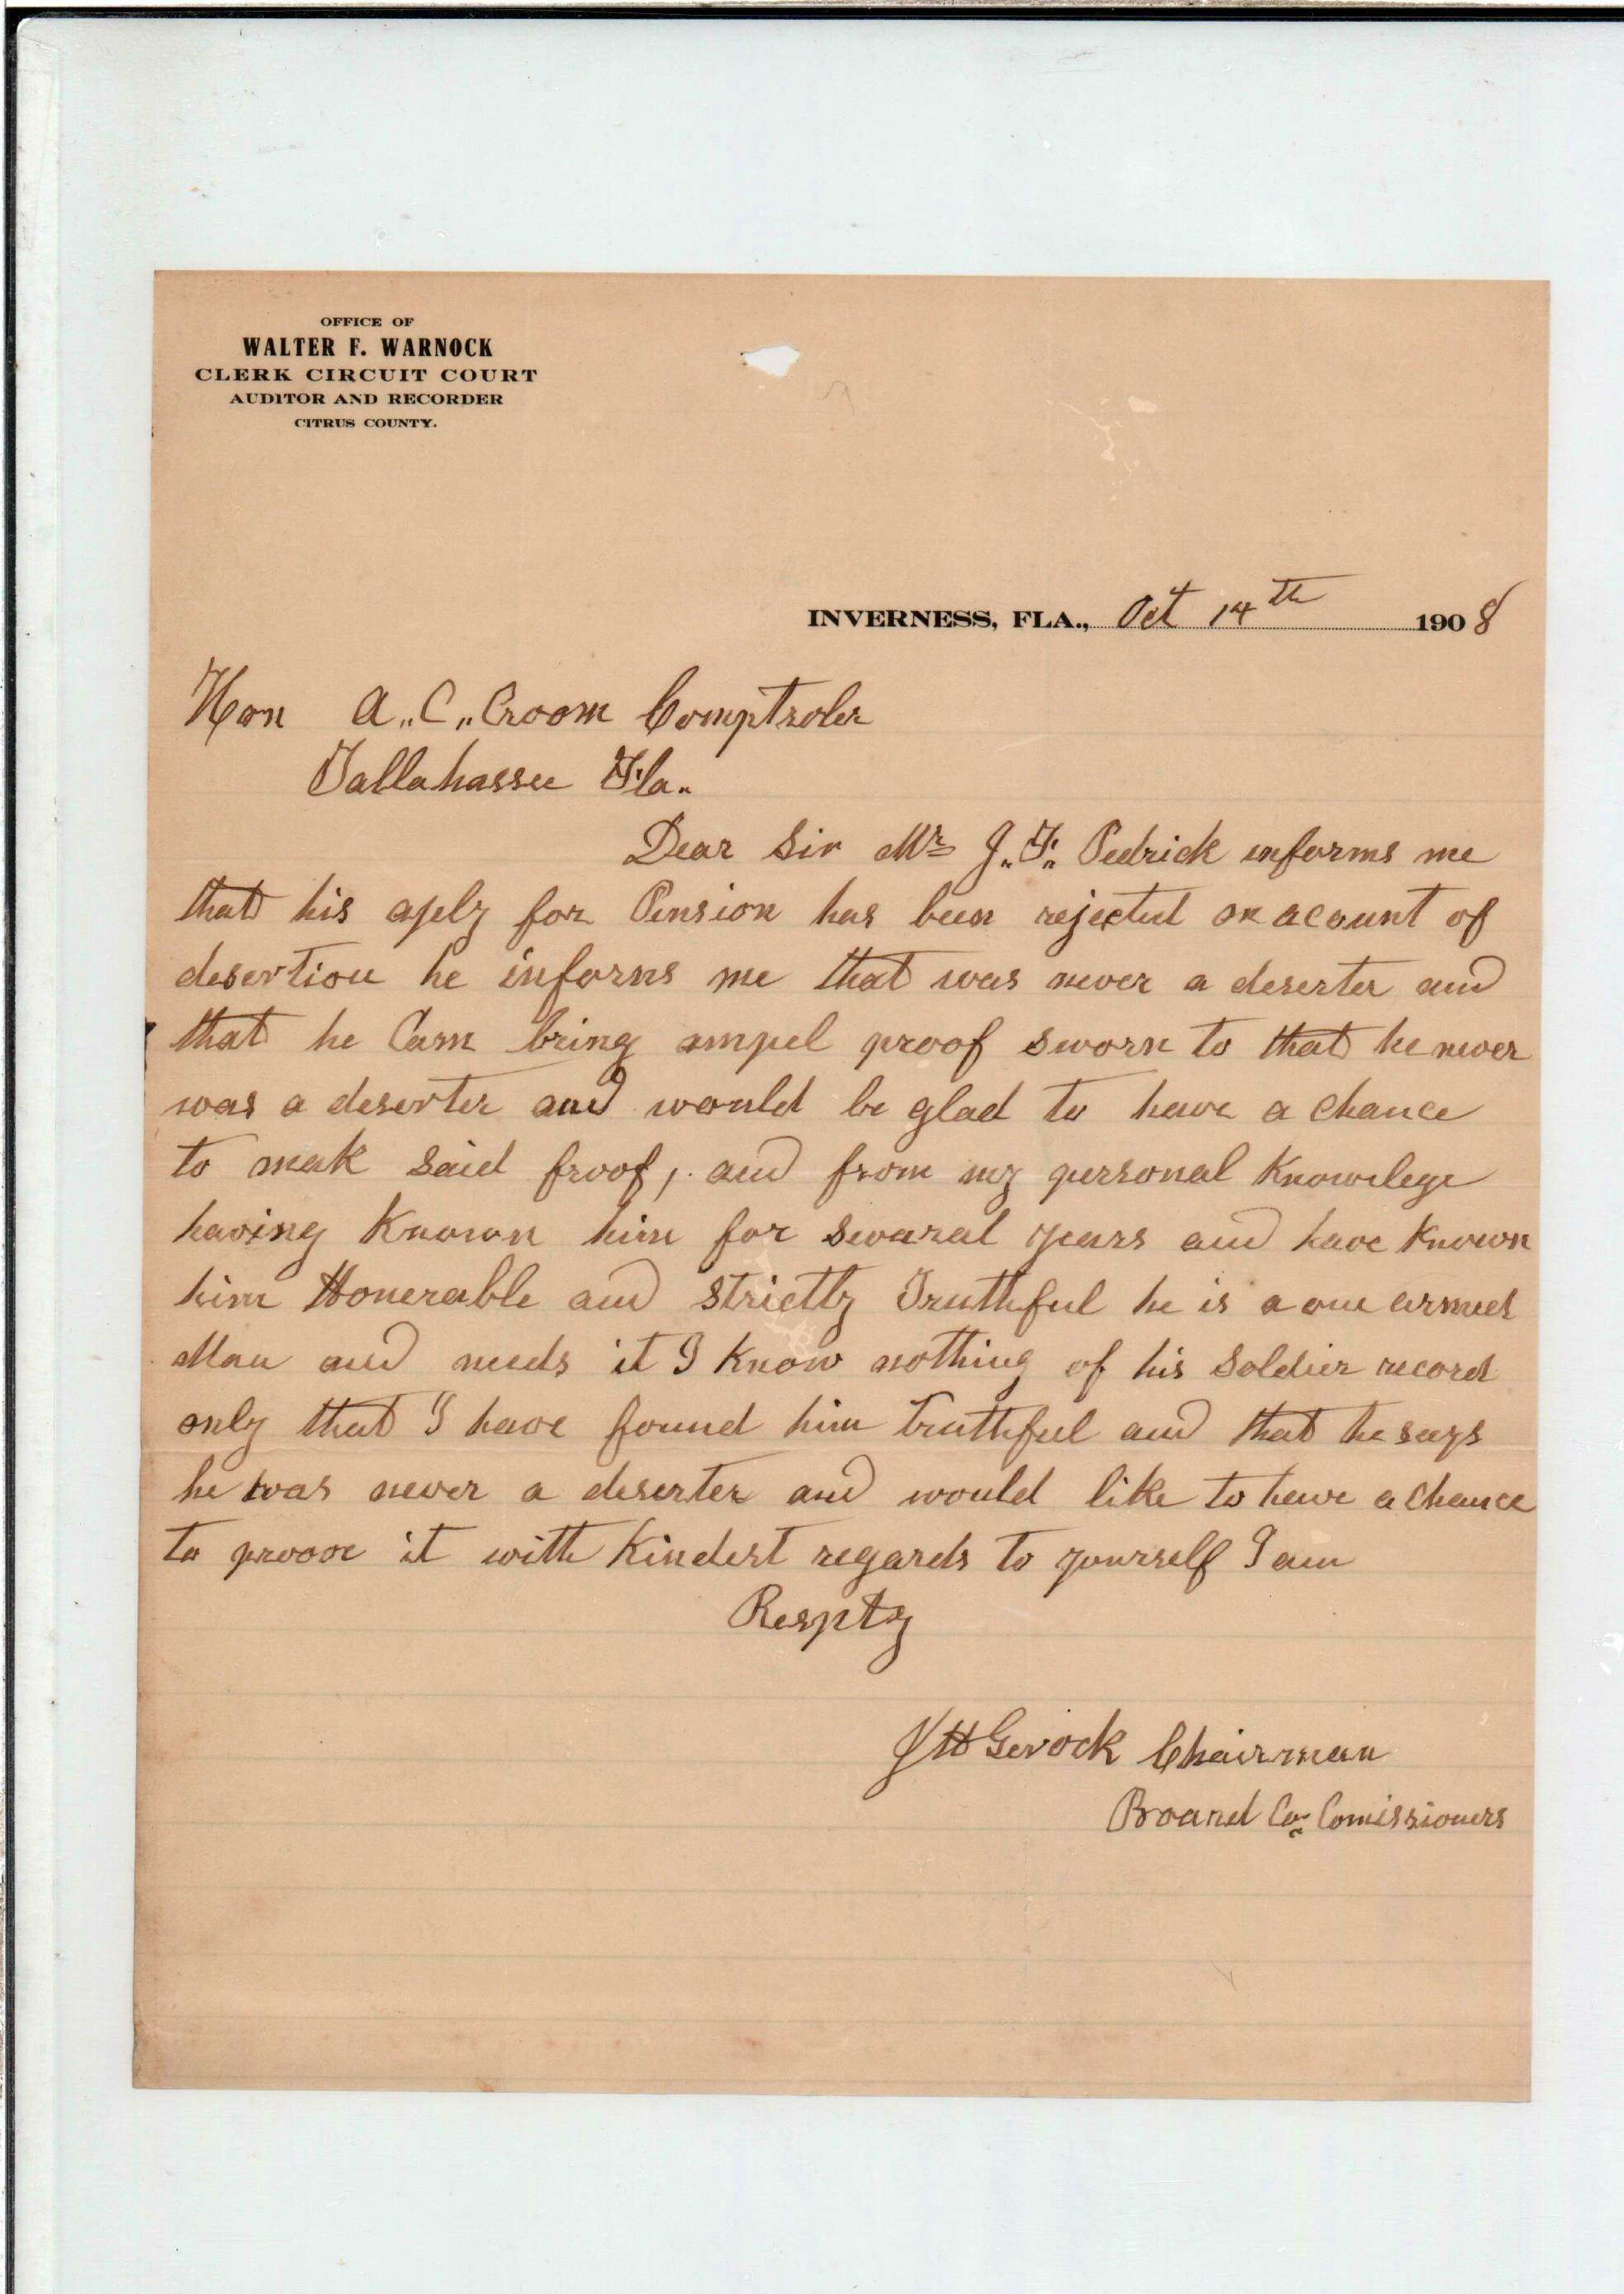 OFFICE OF
WALTER F. WARNOCK
CLERK CIRCUIT COURT
AUDITOR AND RECORDER
CITRUS COUNTY.
INVERNESS, FLA., Oct 14th 1908
Hon A.C. Croom Comptroler
Tallahassee Fla.
Dear Sir Mr J.F. Pedrick informs me
that his aply for Pension has been rejected on acount of
desertion he informs me that was never a deserter and
that he Can bring ampel proof sworn to that he never
was a deserter and would be glad to have a chance
to mak said proof, and from my personal Knowlege
having Known him for sevaral years and have Known
him Honerable and strictly Truthful he is a one armed
Man and needs it I Know nothing of his Soldier record
only that I have found him Truthful and that he says
he was never a deserter and would like to have a chance
to proove it with Kindest regards to yourself I am
Respty
JH Gerock Chairman
Board Co. Comissioners